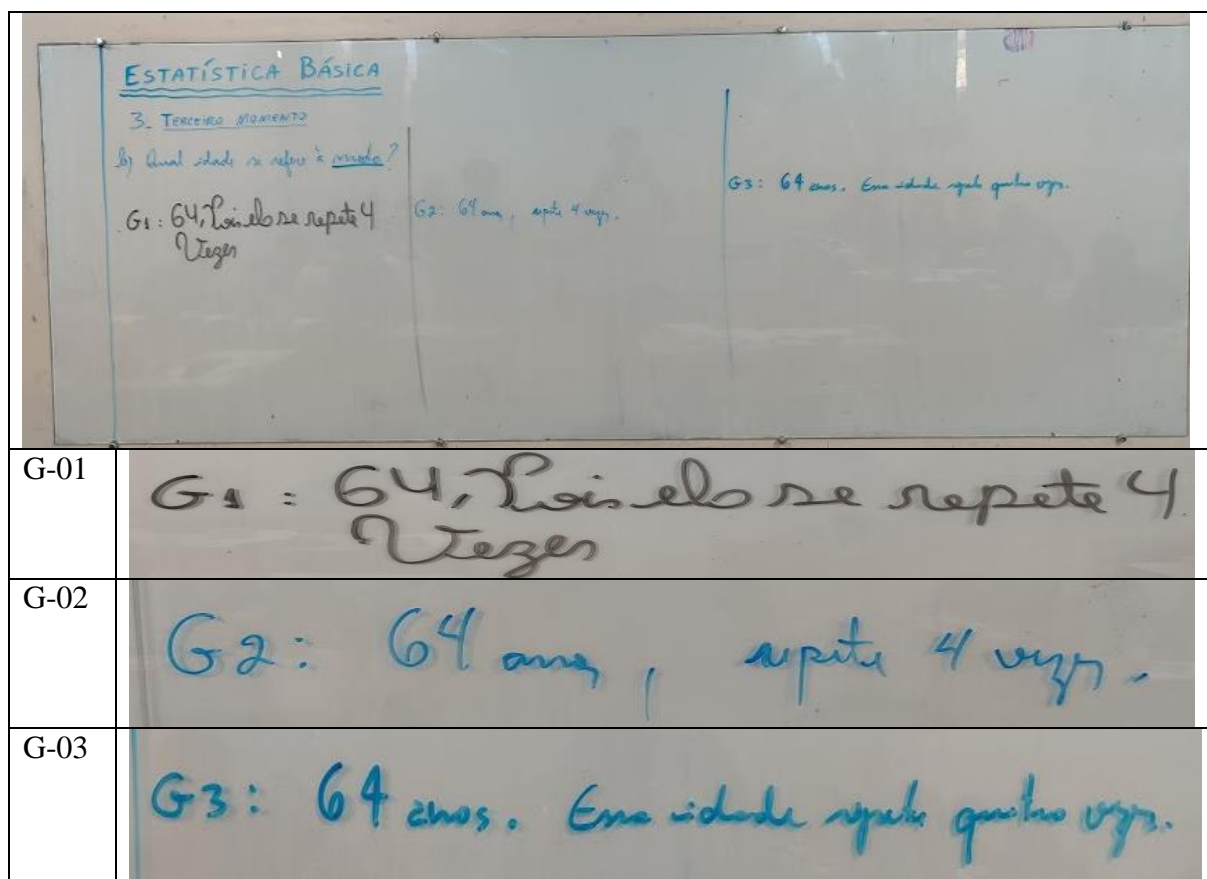 ESTATÍSTICA BÁSICA
3. TERCEIRO MOMENTO
b) Qual idade se refere à moda?
G1: 64, Pois ela se repete 4
Vezes
G2: 64 anos, repete 4 vezes.
G3: 64 anos. Essa idade repete quatro vezes.
G-01
G1: 64, Pois ela se repete 4
Vezes
G-02
G2: 64 anos, repete 4 vezes.
G-03
G3: 64 anos. Essa idade repete quatro vezes.